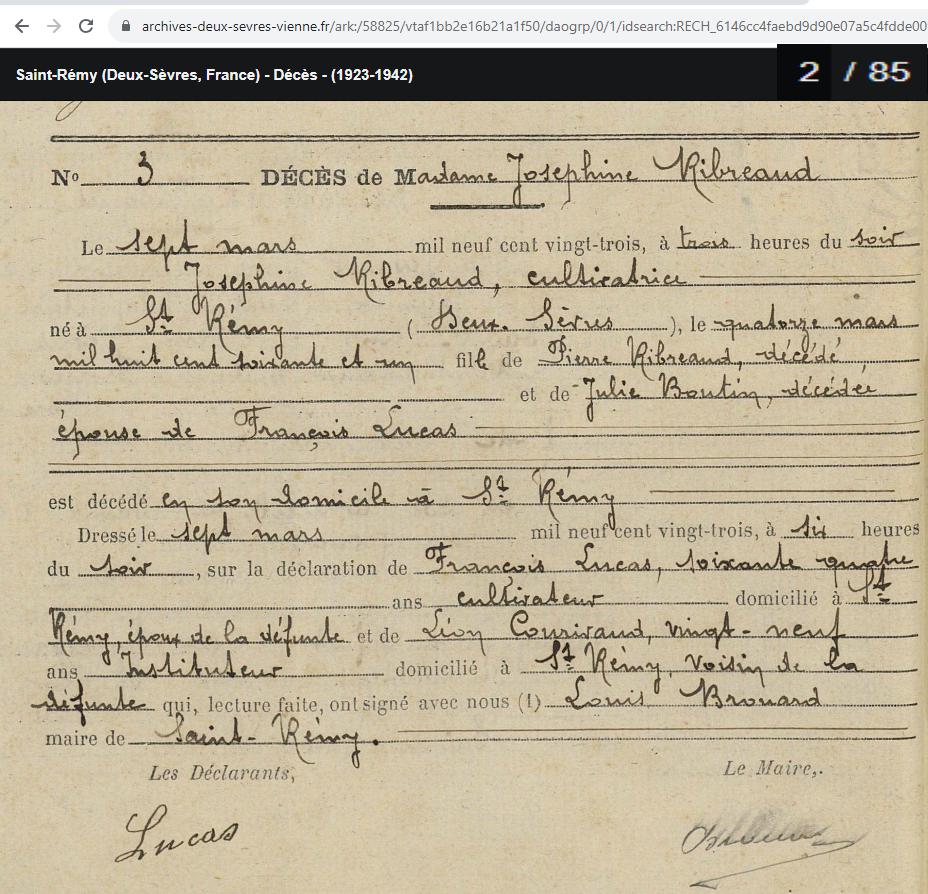 archives-deux-sevres-vienne.fr/ark:/58825/vtaf1bb2e16b21a1f50/daogrp/0/1/idsearch:RECH_6146cc4faebd9d90e07a5c4fdde00
Saint-Rémy (Deux-Sèvres, France) - Décès - (1923-1942) 2 / 85
No 3 DÉCÈS de Madame Josephine Ribreaud
Le sept mars mil neuf cent vingt-trois, à trois heures du soir
Josephine Ribreaud, cultivatrice
né à St Rémy (Deux-Sèvres), le quatorze mars
mil huit cent soixante et un fille de Pierre Ribreaud, décédé
et de Julie Boutin, décédée
épouse de François Lucas
est décédé en son domicile à St Rémy
Dressé le sept mars mil neuf cent vingt-trois, à six heures
du soir, sur la déclaration de François Lucas, soixante quatre
ans cultivateur domicilié à St
Rémy, époux de la défunte et de Léon Courivaud, vingt-neuf
ans Instituteur domicilié à St Rémy, voisin de la
défunte qui, lecture faite, ont signé avec nous (1) Louis Brouard
maire de Saint-Rémy.
Les Déclarants, Le Maire,.
Lucas